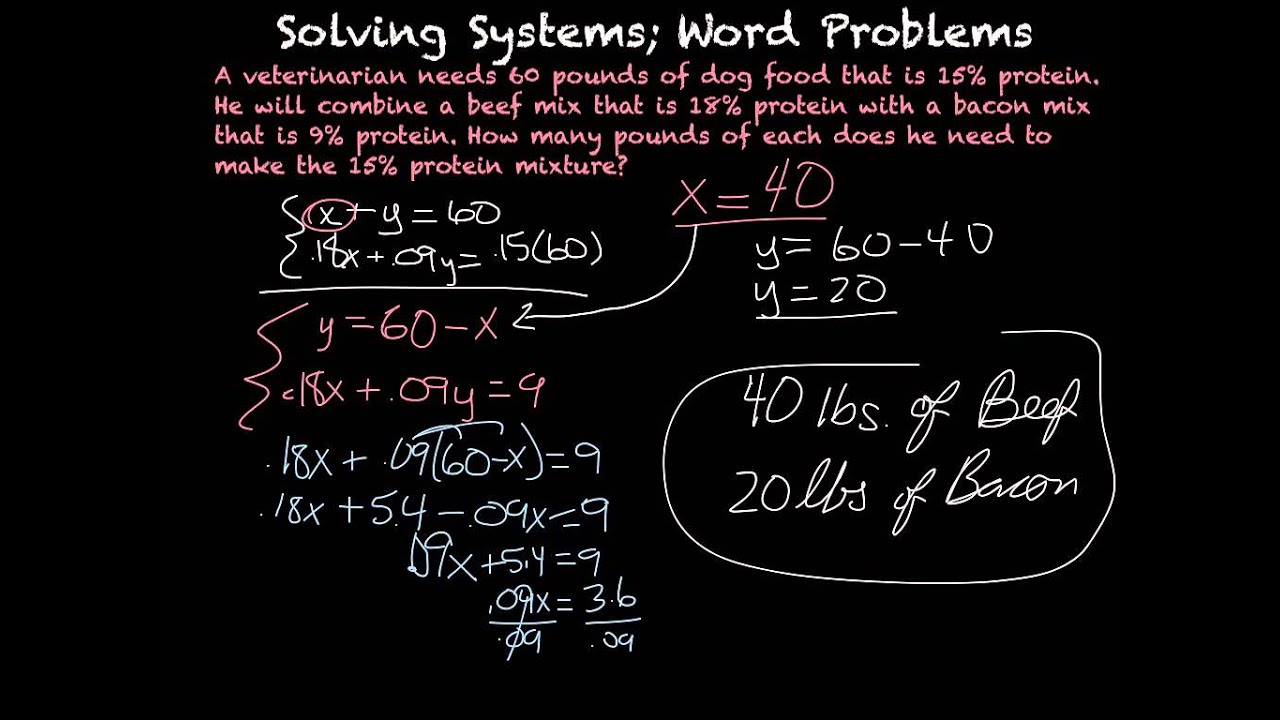 Solving Systems; Word Problems
A veterinarian needs 60 pounds of dog food that is 15% protein.
He will combine a beef mix that is 18% protein with a bacon mix
that is 9% protein. How many pounds of each does he need to
make the 15% protein mixture?
x+y=60
.18x+.09y=.15(60)
y=60-x
.18x+.09y=9
.18x+.09(60-x)=9
.18x+5.4-.09x=9
.09x+5.4=9
.09x=3.6
.09 .09
x=40
y=60-40
y=20
40 lbs. of Beef
20 lbs of Bacon